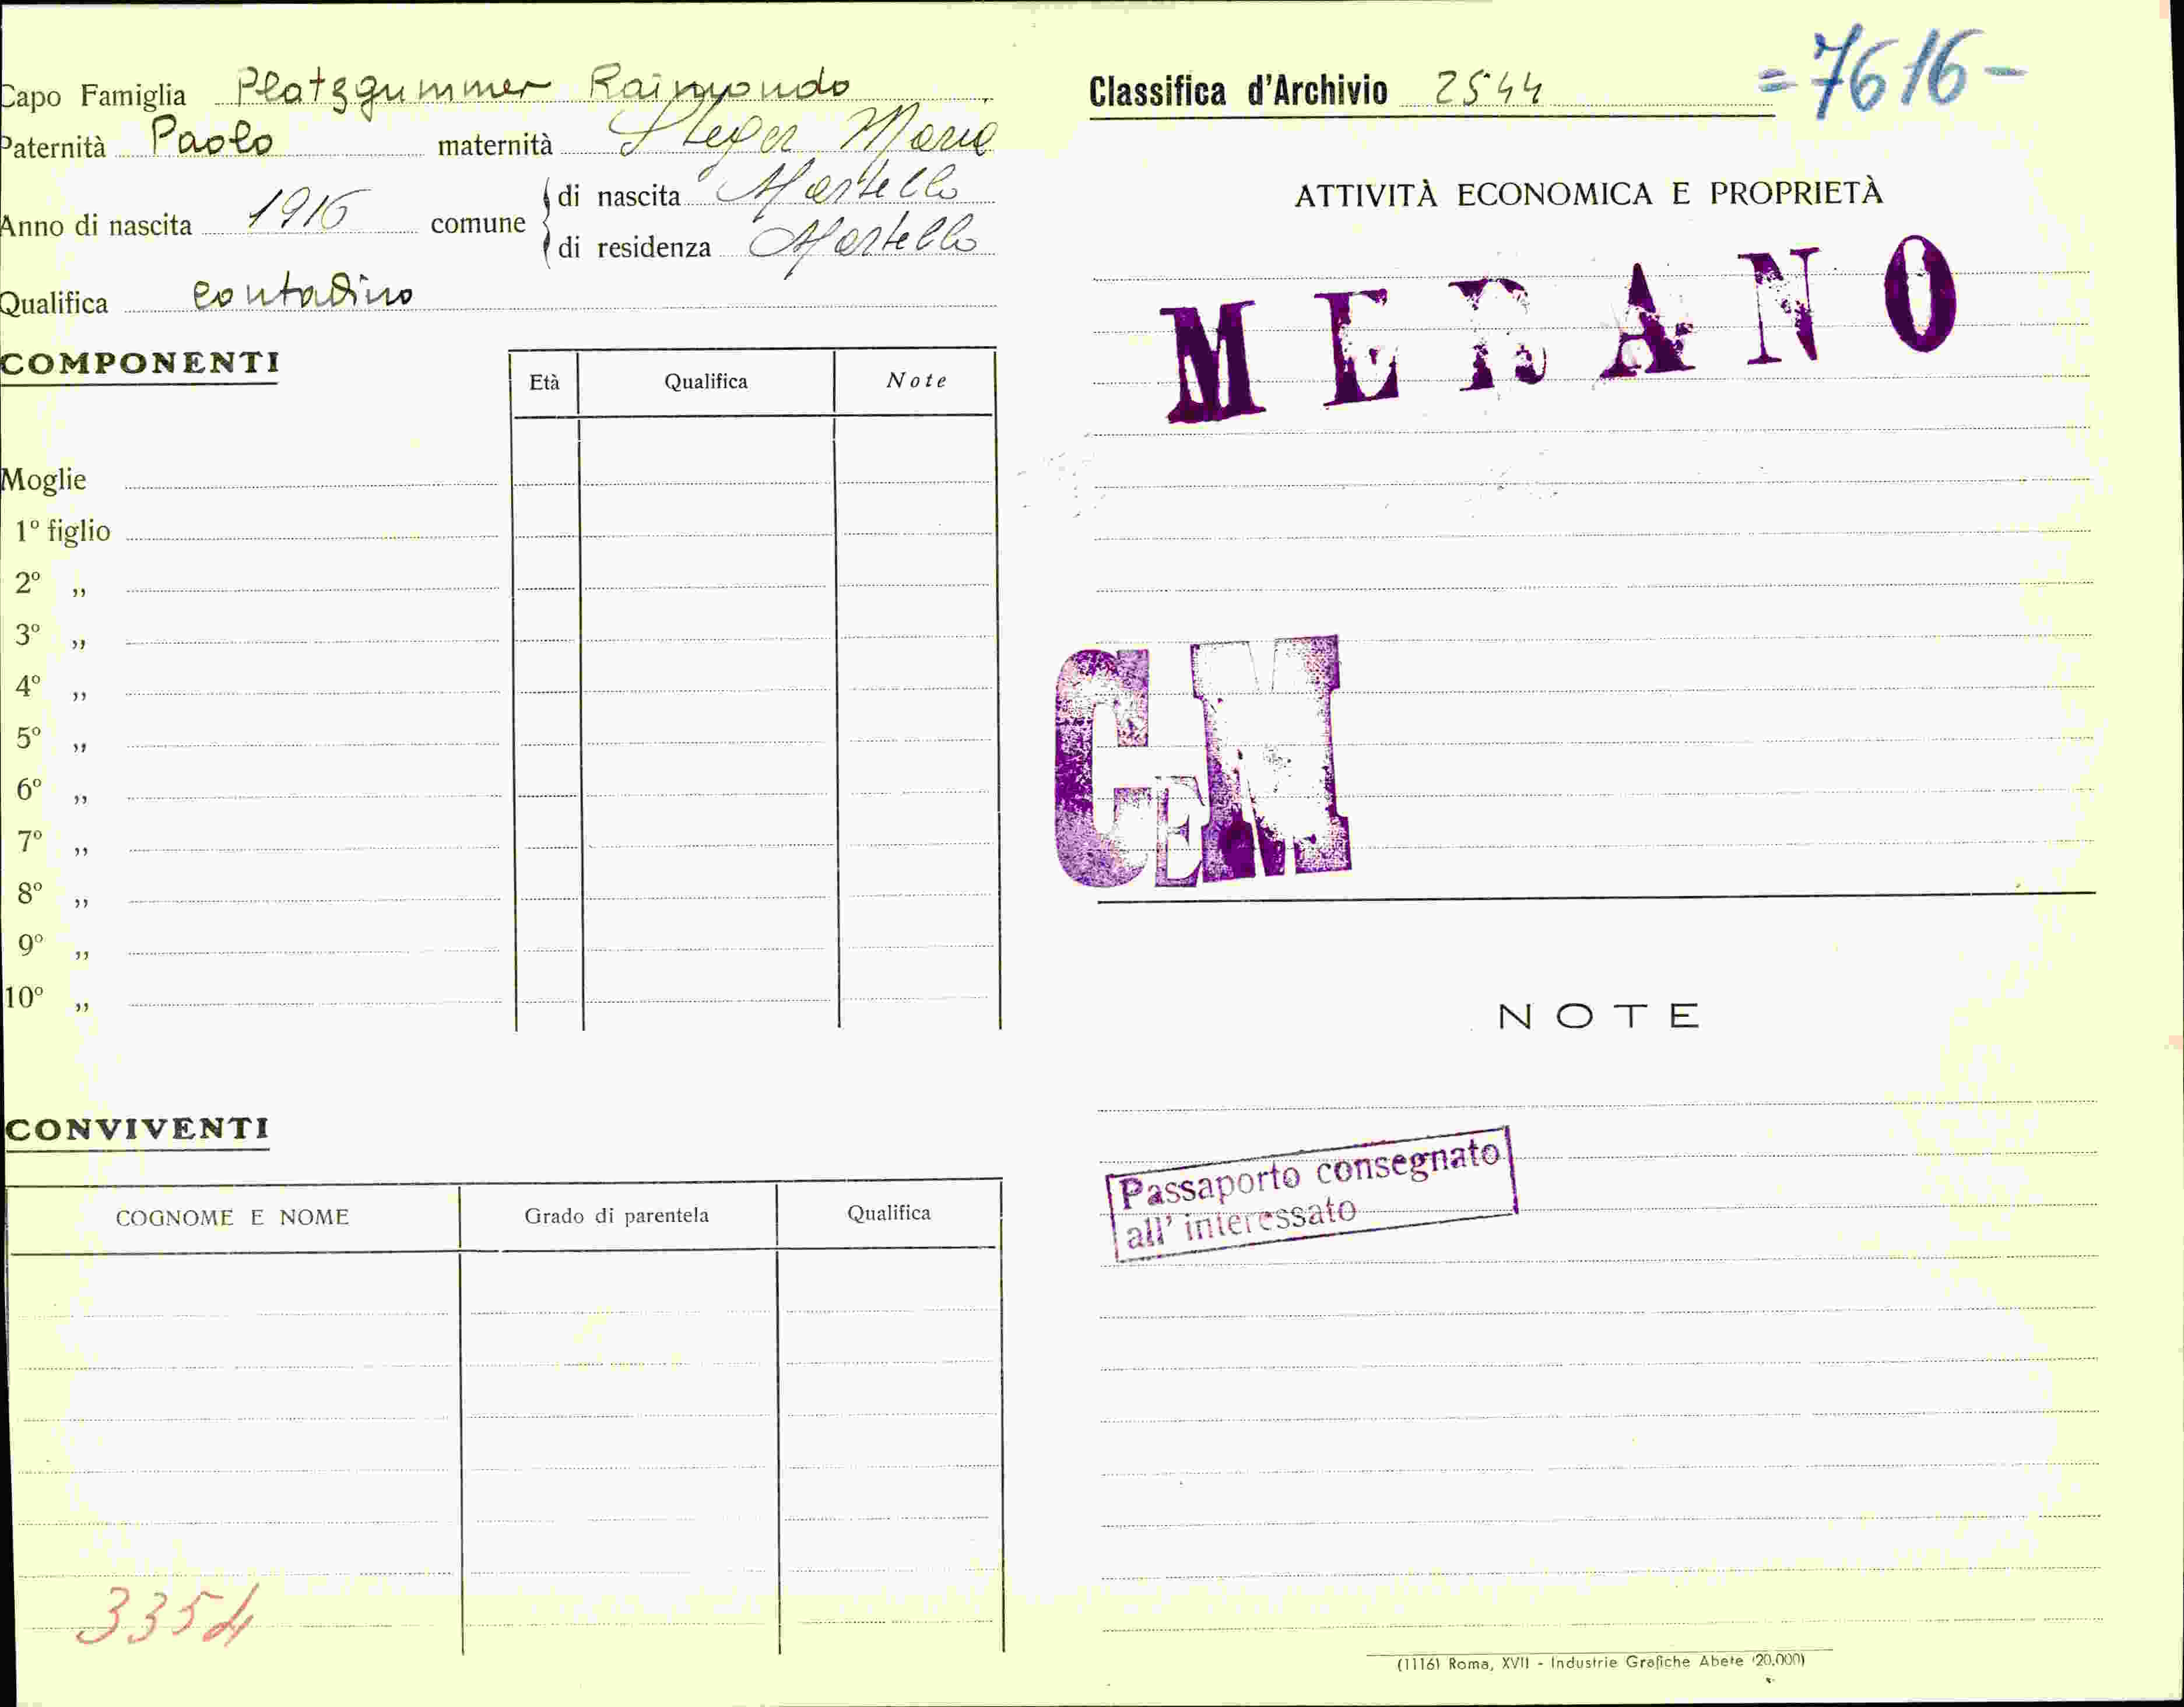 Capo Famiglia Platzgummer Raimondo
Paternità Paolo maternità Steger Maria
Anno di nascita 1916 comune di nascita Martello
di residenza Martello
Qualifica contadino
COMPONENTI
Età Qualifica Note
Moglie
1º figlio
2º ,,
3º ,,
4º ,,
5º ,,
6º ,,
7º ,,
8º ,,
9º ,,
10º ,,
CONVIVENTI
COGNOME E NOME Grado di parentela Qualifica
3354
Classifica d'Archivio 2544 =7616-
ATTIVITÀ ECONOMICA E PROPRIETÀ
MERANO
CEM
NOTE
Passaporto consegnato
all' interessato
(1116) Roma, XVII - Industrie Grafiche Abete (20.000)